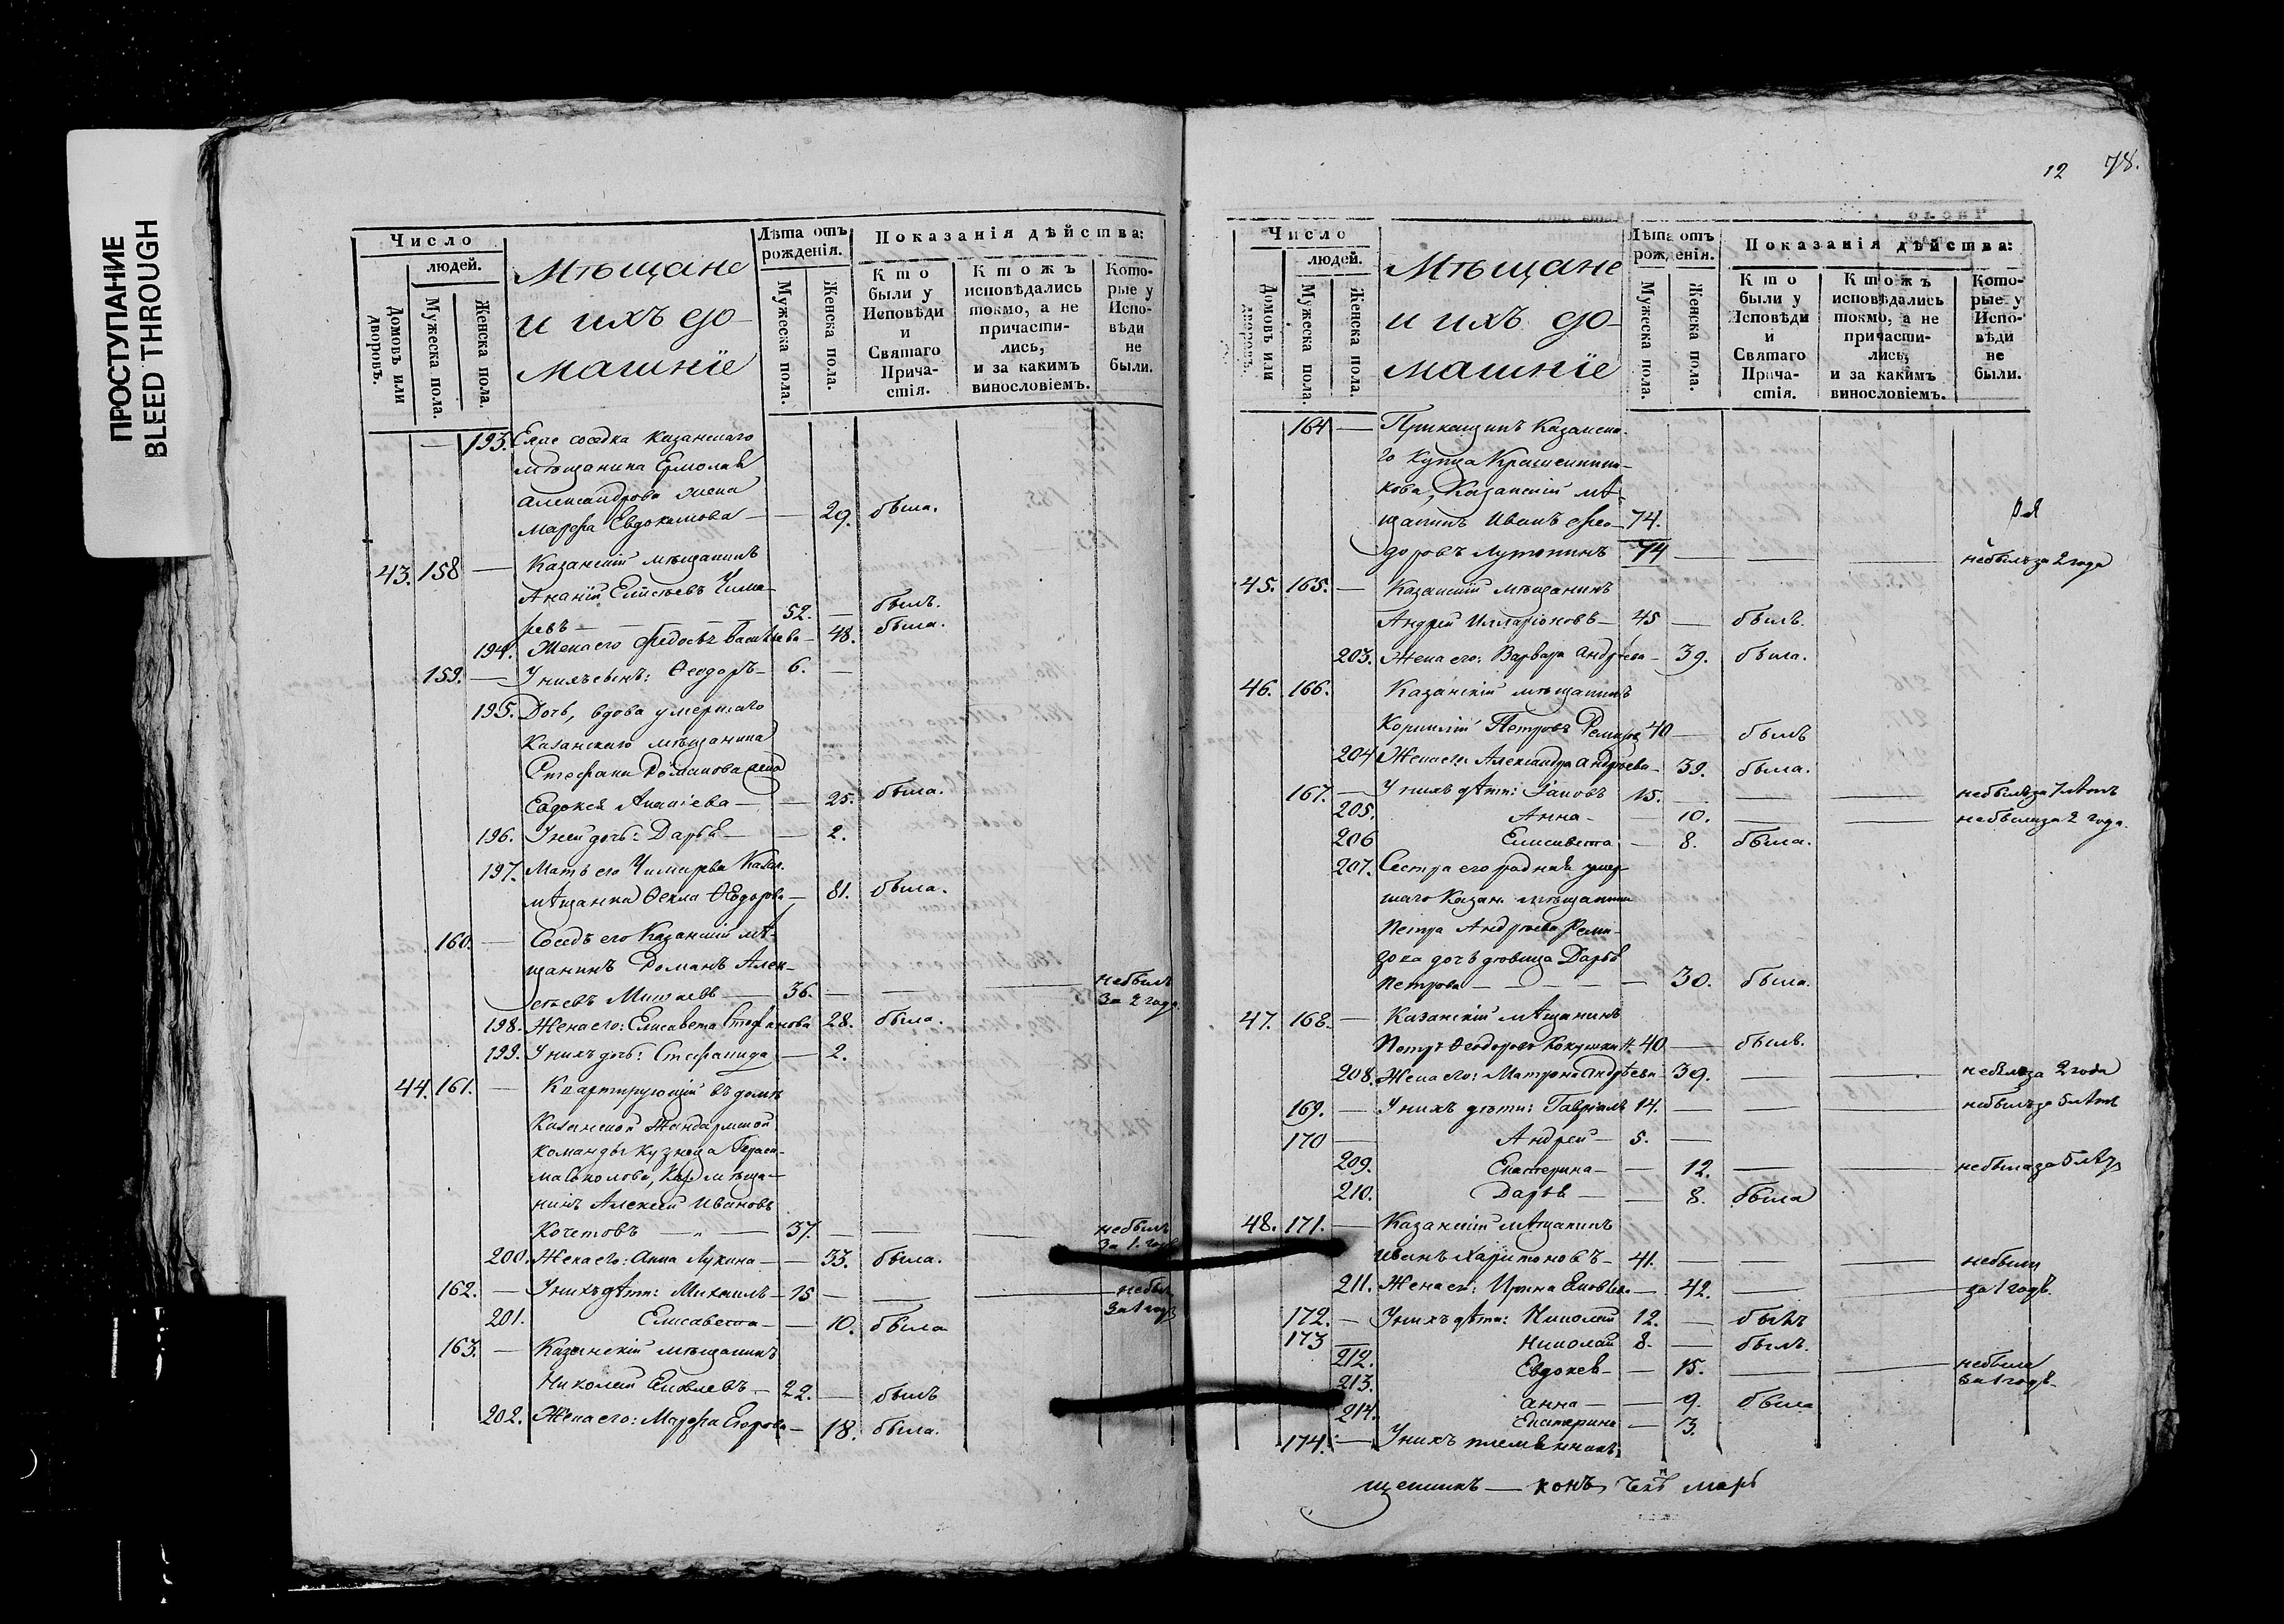 ПРОСТУПАНИЕ
BLEED THROUGH
Число
людей.
Домовъ или дворовъ.
Мужеска пола.
Женска пола.
Мѣщане
и ихъ до-
машніе
Лѣта отъ рожденія.
Мужеска пола.
Женска пола.
Показанія дѣйства:
Кто были у Исповѣди и Святаго Прича-стія.
Ктожъ исповѣдались токмо, а не причасти-лись, и за какимъ винословіемъ.
Кото-рые у Испо-вѣди не были.
— 193. Ея же сосѣдка Казанскаго
мѣщанина Ермолая
Александрова жена
Марфа Евдокимова — — 29. была.
43. 158 — Казанскій мѣщанинъ
Ананій Елисѣевъ Чима-
ревъ — — — 52. — былъ.
194. Жена его Федосья Васильева — 48. была.
159. — У нихъ сынъ: Ѳеодоръ — 6. —
195. Дочь, вдова умершаго
Казанскаго мѣщанина
Стефана Романова жена
Евдокея Ананіева — — 25. была.
196. У ней дочь: Дарья — — 2.
197. Мать его Чимарева Казан.
мѣщанка Ѳекла Ѳеодорова — 81. была.
160. — Сосѣдъ его Казанскій мѣ-
щанинъ Романъ Алек-
сѣевъ — 36. — — — небылъ
за 2 года.
198. Жена его: Елисавета Стефанова 28. была.
199. У нихъ дочь: Стефанида — 2.
44. 161. — Квартирующій въ домѣ
Казанской Жандармской
команды кузнеца
мѣща-
нинъ Алексѣй Ивановъ
Кочетовъ — „ — 37. — — — небылъ
за 1. годъ
200. Жена его: Анна Лукина — — 33. была.
162. — У нихъ дѣти: Михаилъ — 15 — — — небылъ
за 1 годъ
201. Елисавета — — 10. была
163. — Казанскій мѣщанинъ
Николай Яковлевъ — 22. — былъ
202. Жена его: Марфа Егорова — 18. была.
12 78.
Число
людей.
Домовъ или дворовъ.
Мужеска пола.
Женска пола.
Мѣщане
и ихъ до-
машніе
Лѣта отъ рожденія.
Мужеска пола.
Женска пола.
Показанія дѣйства:
Кто были у Исповѣди и Святаго Прича-стія.
Ктожъ исповѣдались токмо, а не причасти-лись, и за какимъ винословіемъ.
Кото-рые у Испо-вѣди не были.
164 — Прикащикъ Казанска-
го купца Крашенинни-
кова, Казанскій мѣ-
щанинъ Иванъ Фео- 74.
доровъ Лутонинъ 74 — — — небылъ за 2 года
45. 165. — Казанскій мѣщанинъ
Андрей Илларіоновъ — 45 — былъ.
203. Жена его: Варвара Андреева — 39. была.
46. 166. Казанскій мѣщанинъ
Корнилій Петровъ 40 — былъ
204 Жена его Александра Андреева — 39. была.
167. — У нихъ дѣти: Іаковъ 15. — — — небылъ за 7 лѣтъ
205. Анна — — 10. — — небыла за 2 года.
206 Елисавета — 8. была.
207. Сестра его родная умер-
шаго Казан. мѣщанина
Петра Андреева
дочь дѣвица Дарья
Петрова — — — — 30. была.
47. 168. — Казанскій мѣщанинъ
Петръ Ѳеодоровъ Кокушкин 40 — былъ.
208. Жена его: Матрона Андреева — 39. — — небыла 2 года
169. — У нихъ дѣти: Гавріилъ 14. — — — небылъ за 5 лѣтъ
170 — Андрей — 5. —
209. Екатерина — — 12. — — небыла за 5 лѣтъ
210. Дарья — — 8. была
48. 171. — Казанскій мѣщанинъ
Иванъ Харитоновъ — 41. — — — небыли
211. Жена его: Ирина Яковлева — 42. — — за 1 годъ.
172. — У нихъ дѣти: Николай 12. — былъ
173 — Николай 8. — былъ.
212. Евдокея — — 15. — — небыла
за 1 годъ.
213. Анна — — 9. была
214. Екатерина — 3.
174. — У нихъ племянникъ